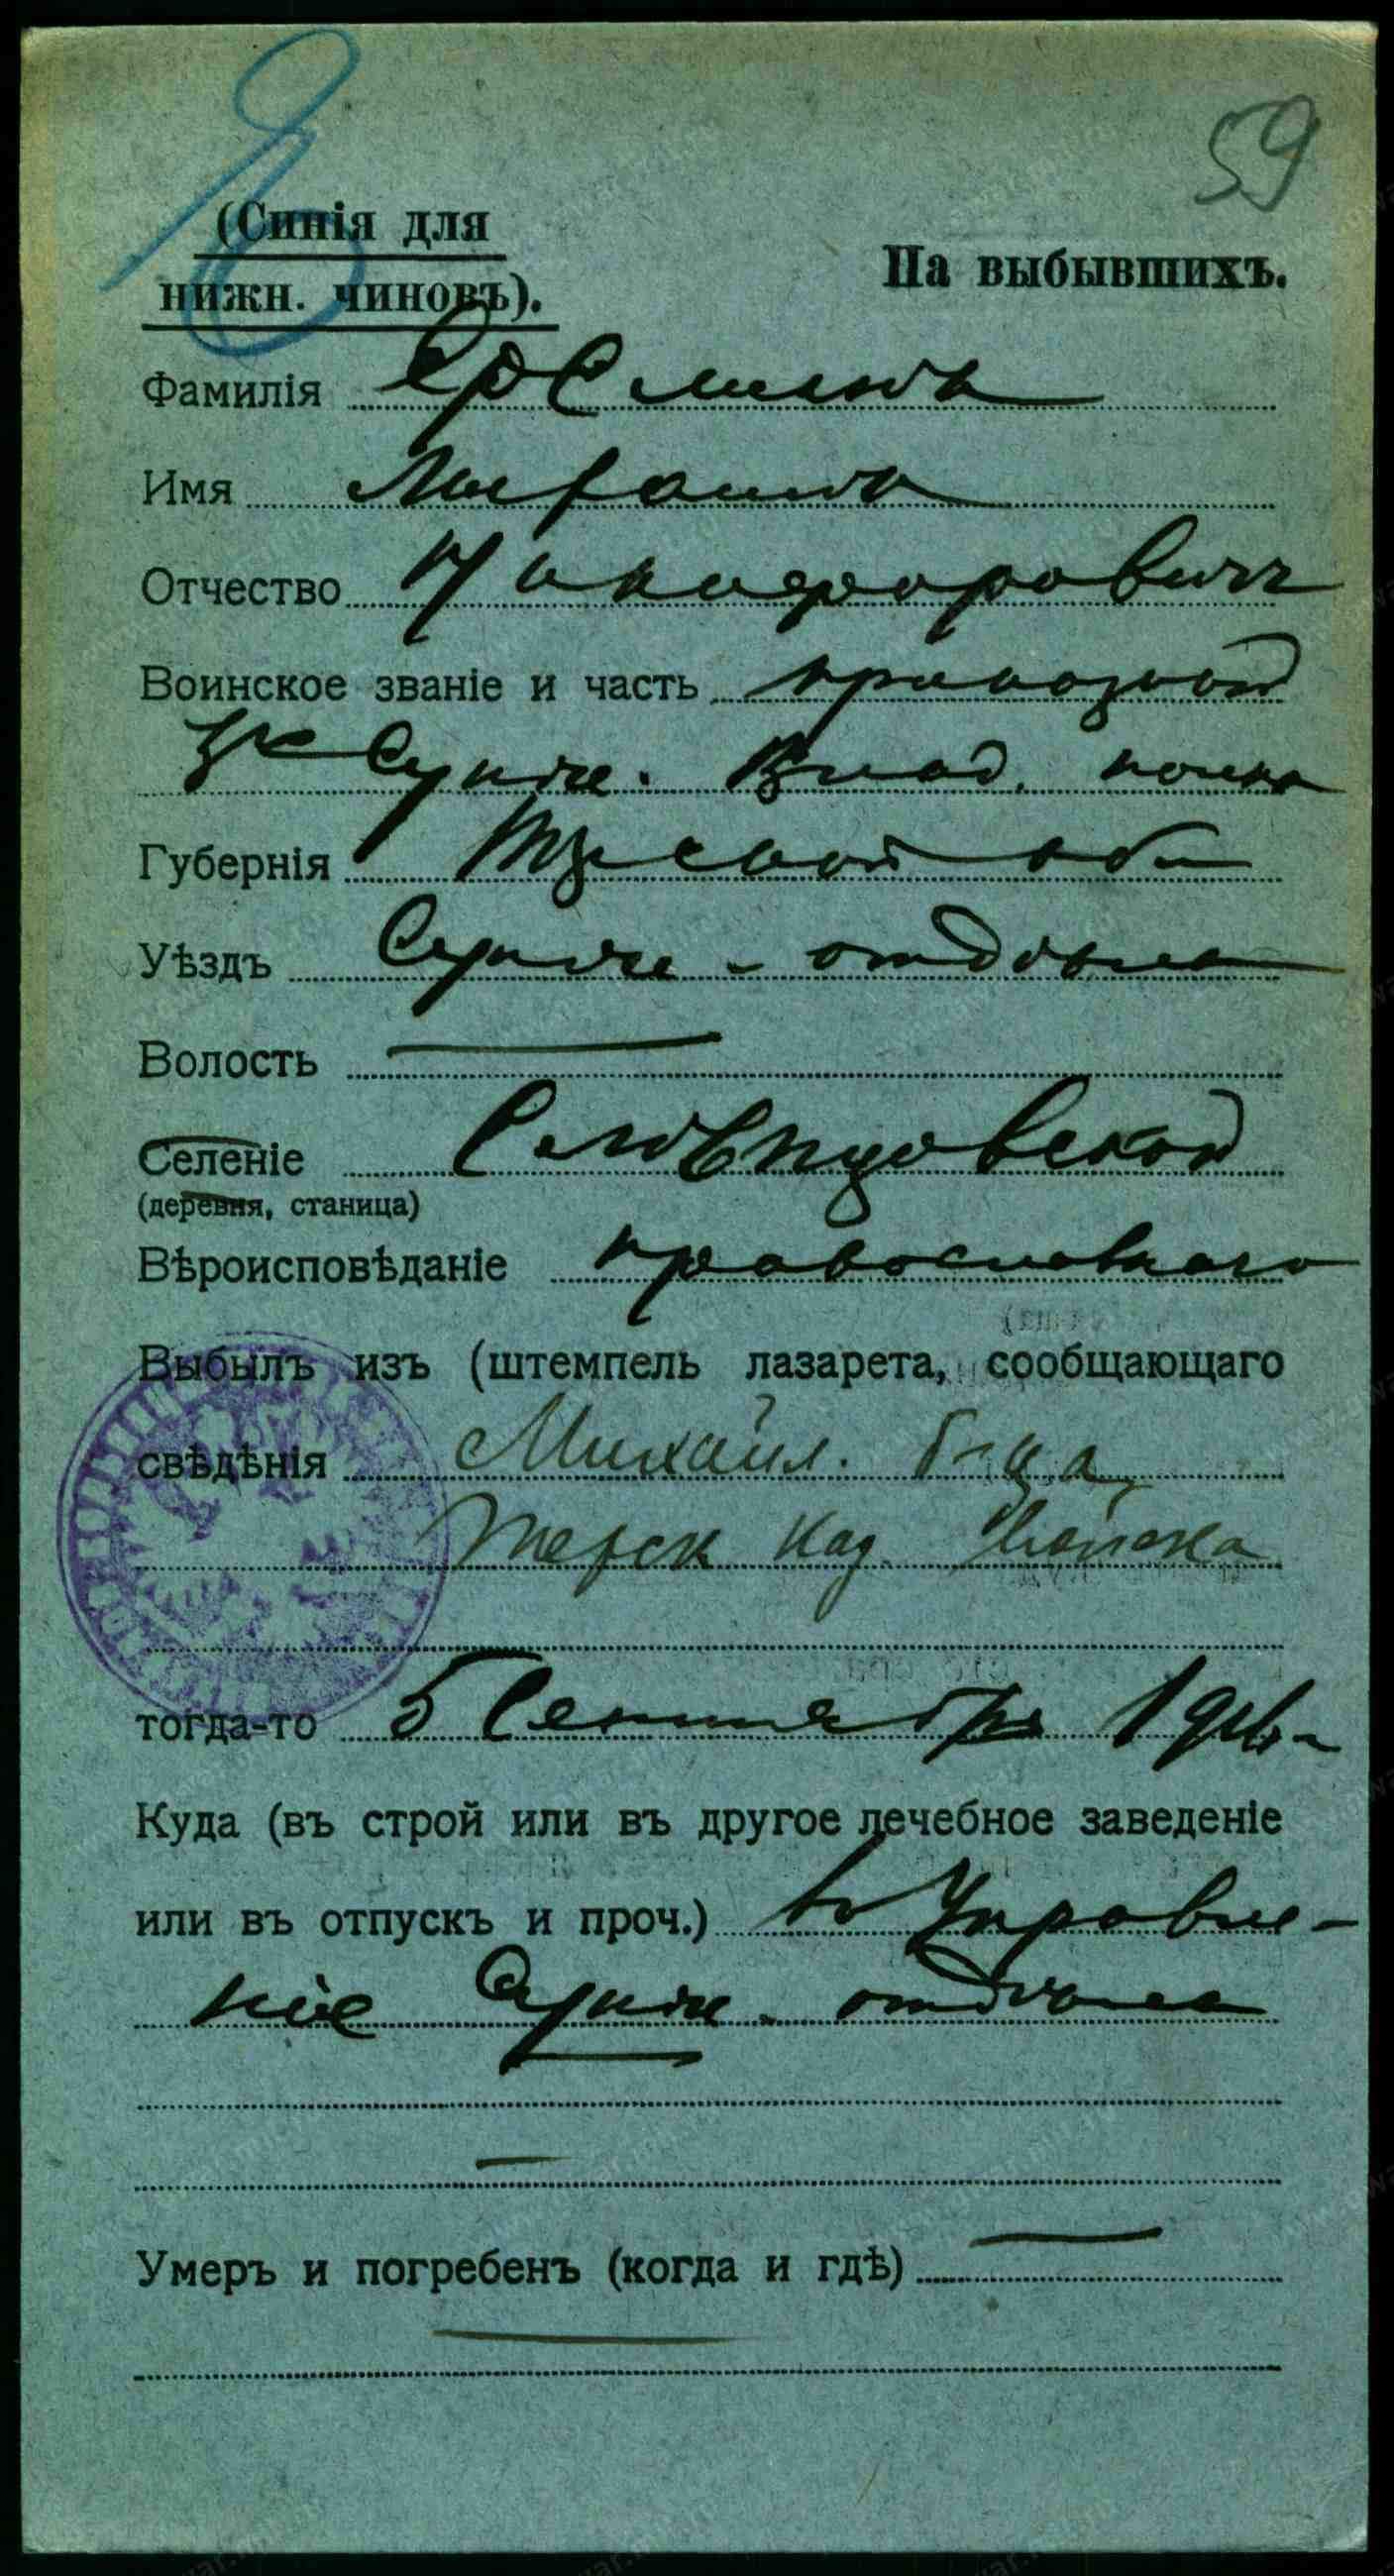 59
(Синія для
На выбывшихъ.
нижн. чиновъ).
Фамилія Ереминъ
Имя Миронъ
Отчество Никифоровичъ
Воинское званіе и часть приказный
3го Сунж. Влад. полка
Губернія Терской обл
Уѣздъ Сунже - отдѣла
Волость —
Селеніе Слѣпцовской
(деревня, станица)
Вѣроисповѣданіе православнаго
Выбылъ изъ (штемпель лазарета, сообщающаго
свѣдѣнія Михайл. б-ца
Терск Каз. Войска
тогда-то 5 Сентября 1916
Куда (въ строй или въ другое лечебное заведеніе
или въ отпускъ и проч.) въ Управле-
ніе Сунж. отдѣла
Умеръ и погребенъ (когда и гдѣ) —